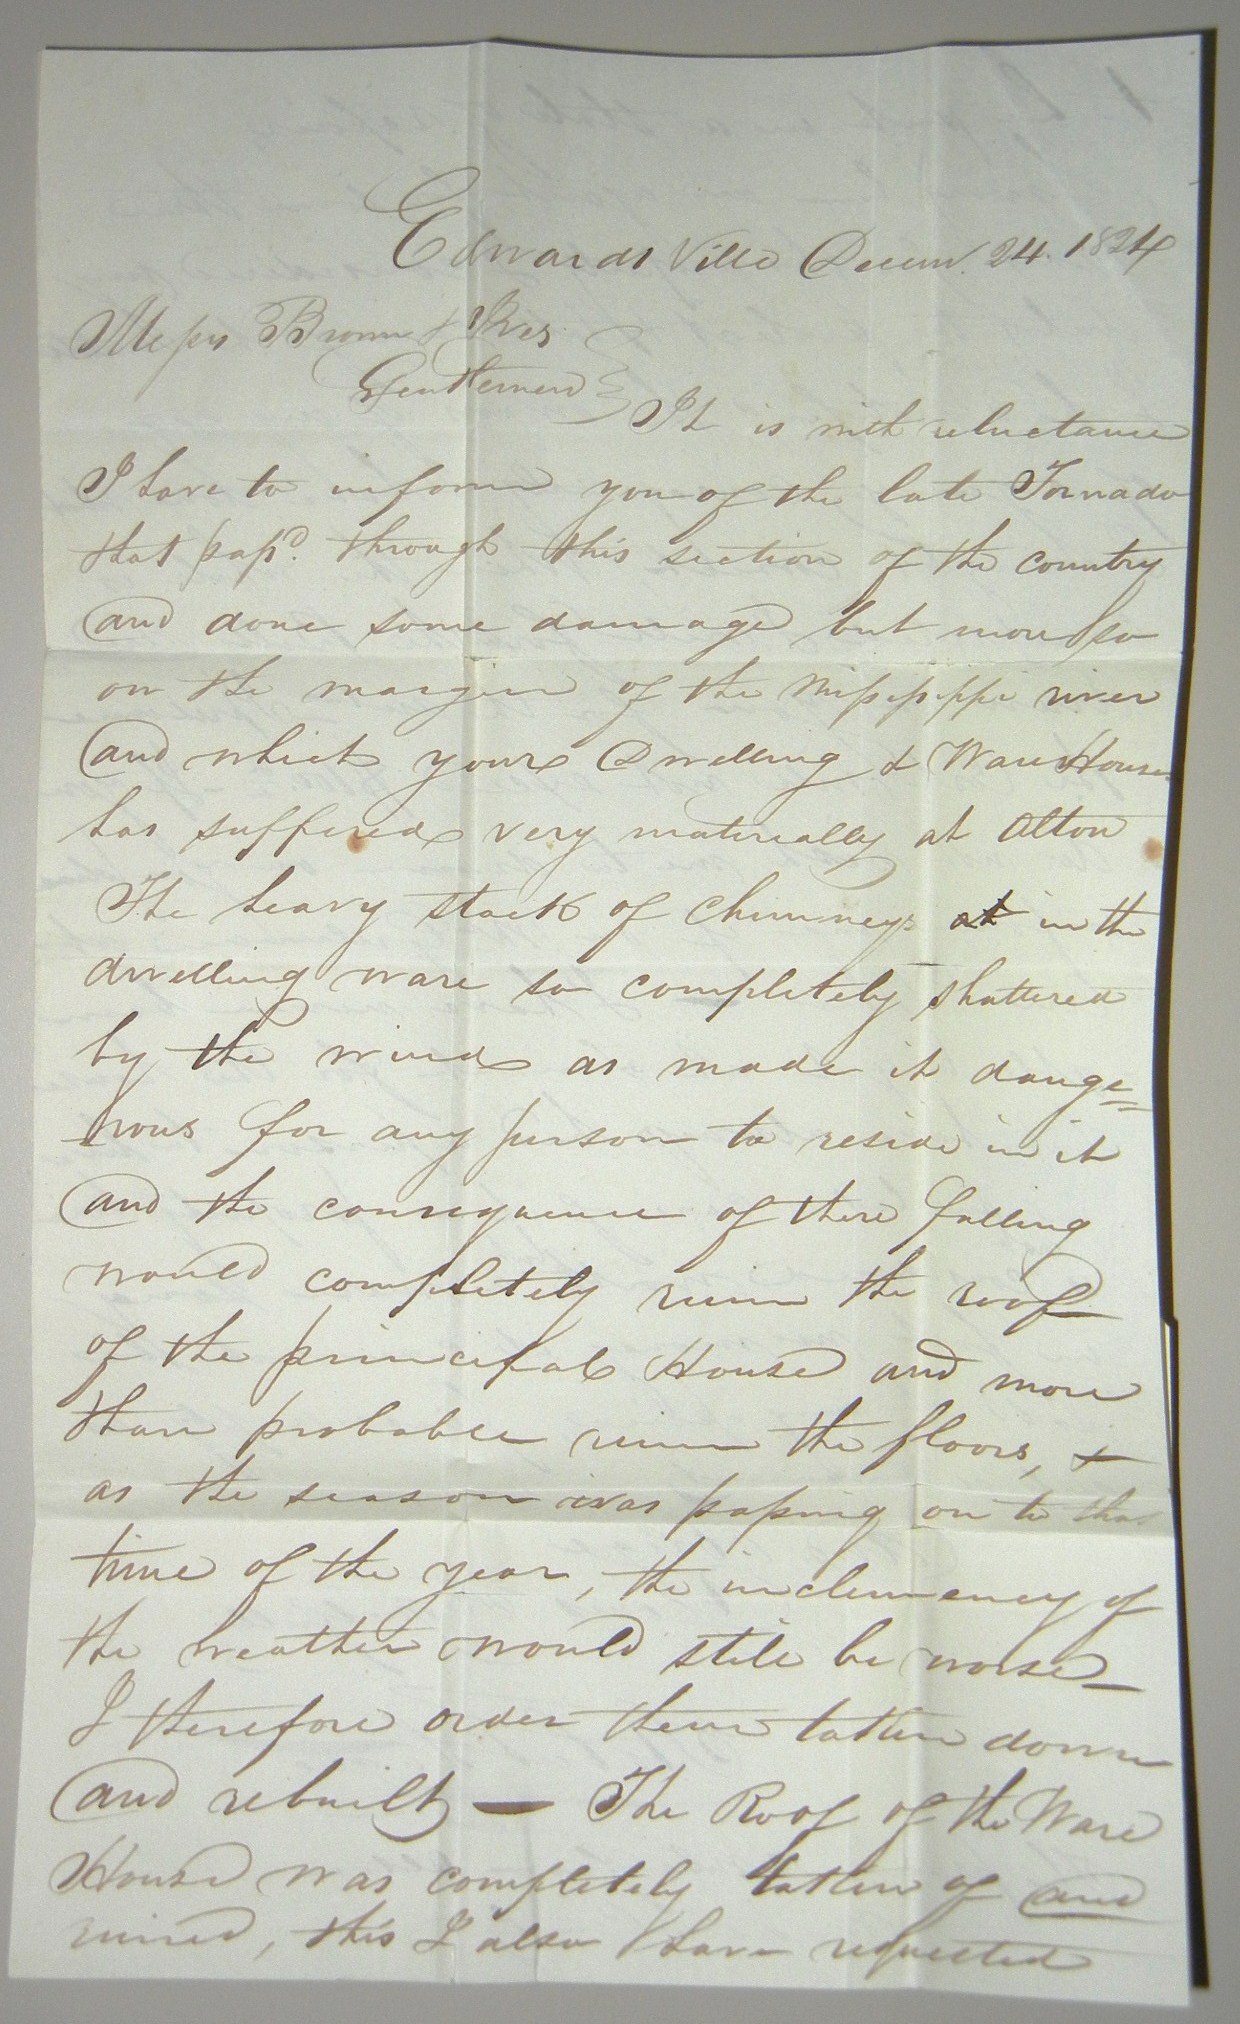 Edwards Ville Decem. 24. 1824
Messrs Brown & Ives
Gentlemen
It is with reluctance
I have to inform you of the late Tornado
that passd. through this section of the country
and done some damage but more so
on the margin of the Missisippi river
and which your Dwelling & Ware House
has suffered very materially at Alton
The heavy stack of Chimneys at in the
dwelling ware so completely shattered
by the wind as made it dange=
rous for any person to reside in it
and the consequence of there falling
would completely ruin the roof
of the principal House and more
than probable ruin the floors, &
as the season was passing on to that
time of the year, the inclemency of
the weather would still be worse
I therefore order them taken down
and rebuilt — The Roof of the Ware
House was completely taken of and
ruined, this I also have requested